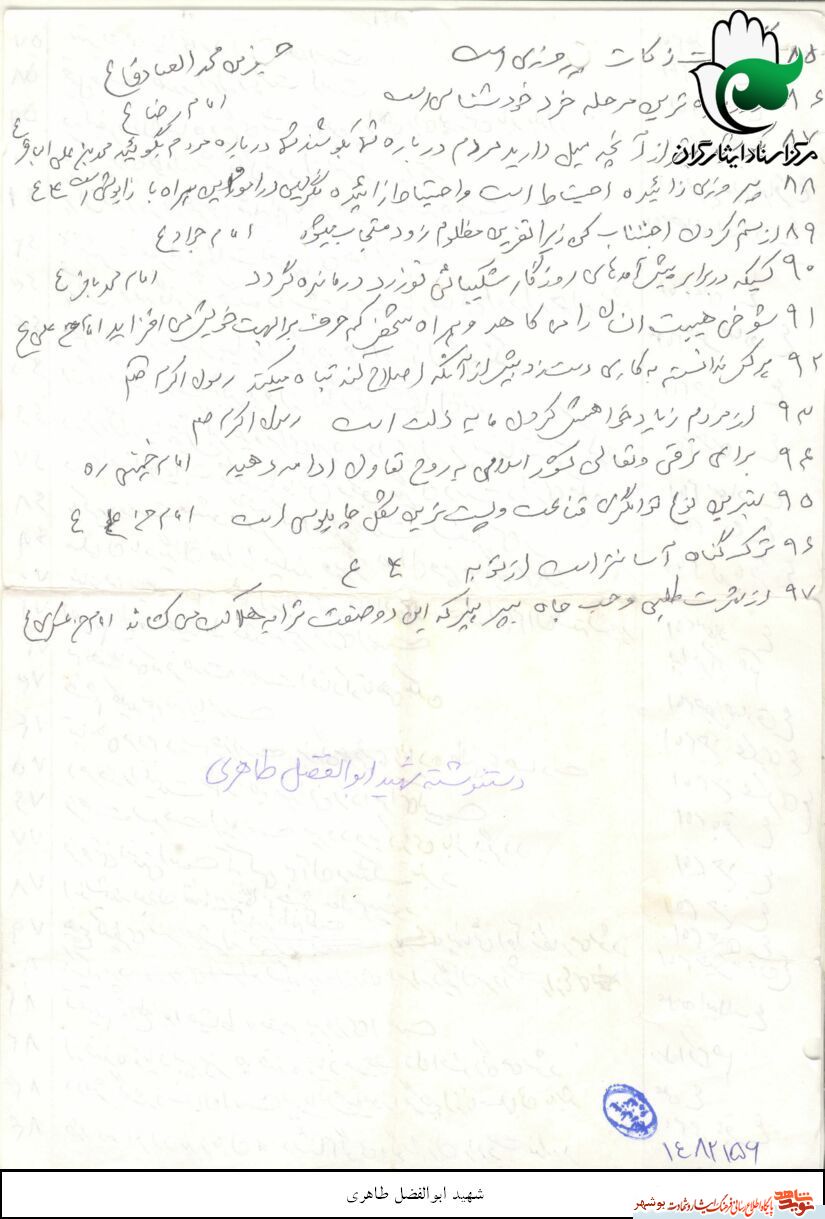 ۸۵ زکات پیروزی است جعفر بن محمد الصادق ع
۸۶ ترین مرحله خرد خودشناسی است امام رضا ع
۸۷ از آنچه میل دارید مردم درباره شما بگویند شما درباره مردم بگوئید محمد بن علی الباقر ع
مرکز اسناد ایثارگران
۸۸ پیروزی زائیده احتیاط است و احتیاط زائیده
۸۹ از ستم کردن اجتناب کن زیرا نفرین مظلوم زود مستجاب میشود امام جواد ع
۹۰ کسیکه در برابر پیش آمدهای روزگار شکیبائی نورزد درمانده گردد امام محمد باقر ع
۹۱ شوخی هیبت انسان را می کاهد و بهمراه شخص کم حرف بر ابهت خویش می افزاید امام علی ع
۹۲ هرکس ندانسته به کاری دست زد بیش از آنکه اصلاح کند تباه میکند رسول اکرم ص
۹۳ از مردم زیاد خواهش کردن مایه ذلت است رسول اکرم ص
۹۴ برای ترقی و تعالی کشور اسلامی به روح تعاون ادامه دهید امام خمینی ره
۹۵ بهترین نوع توانگری قناعت و پست ترین شکل چاپلوسی است امام حسن ع
۹۶ ترک گناه آسانتر است از توبه ع
۹۷ از شهرت طلبی و حب جاه بپرهیز که این دو صفت ترا به هلاکت می کشاند امام حسن عسکری ع
دستنوشته شهید ابوالفضل طاهری
۱۴۸۲۱۵۶
شهید ابوالفضل طاهری
نوید شاهد پایگاه اطلاع رسانی فرهنگ ایثار و شهادت بوشهر